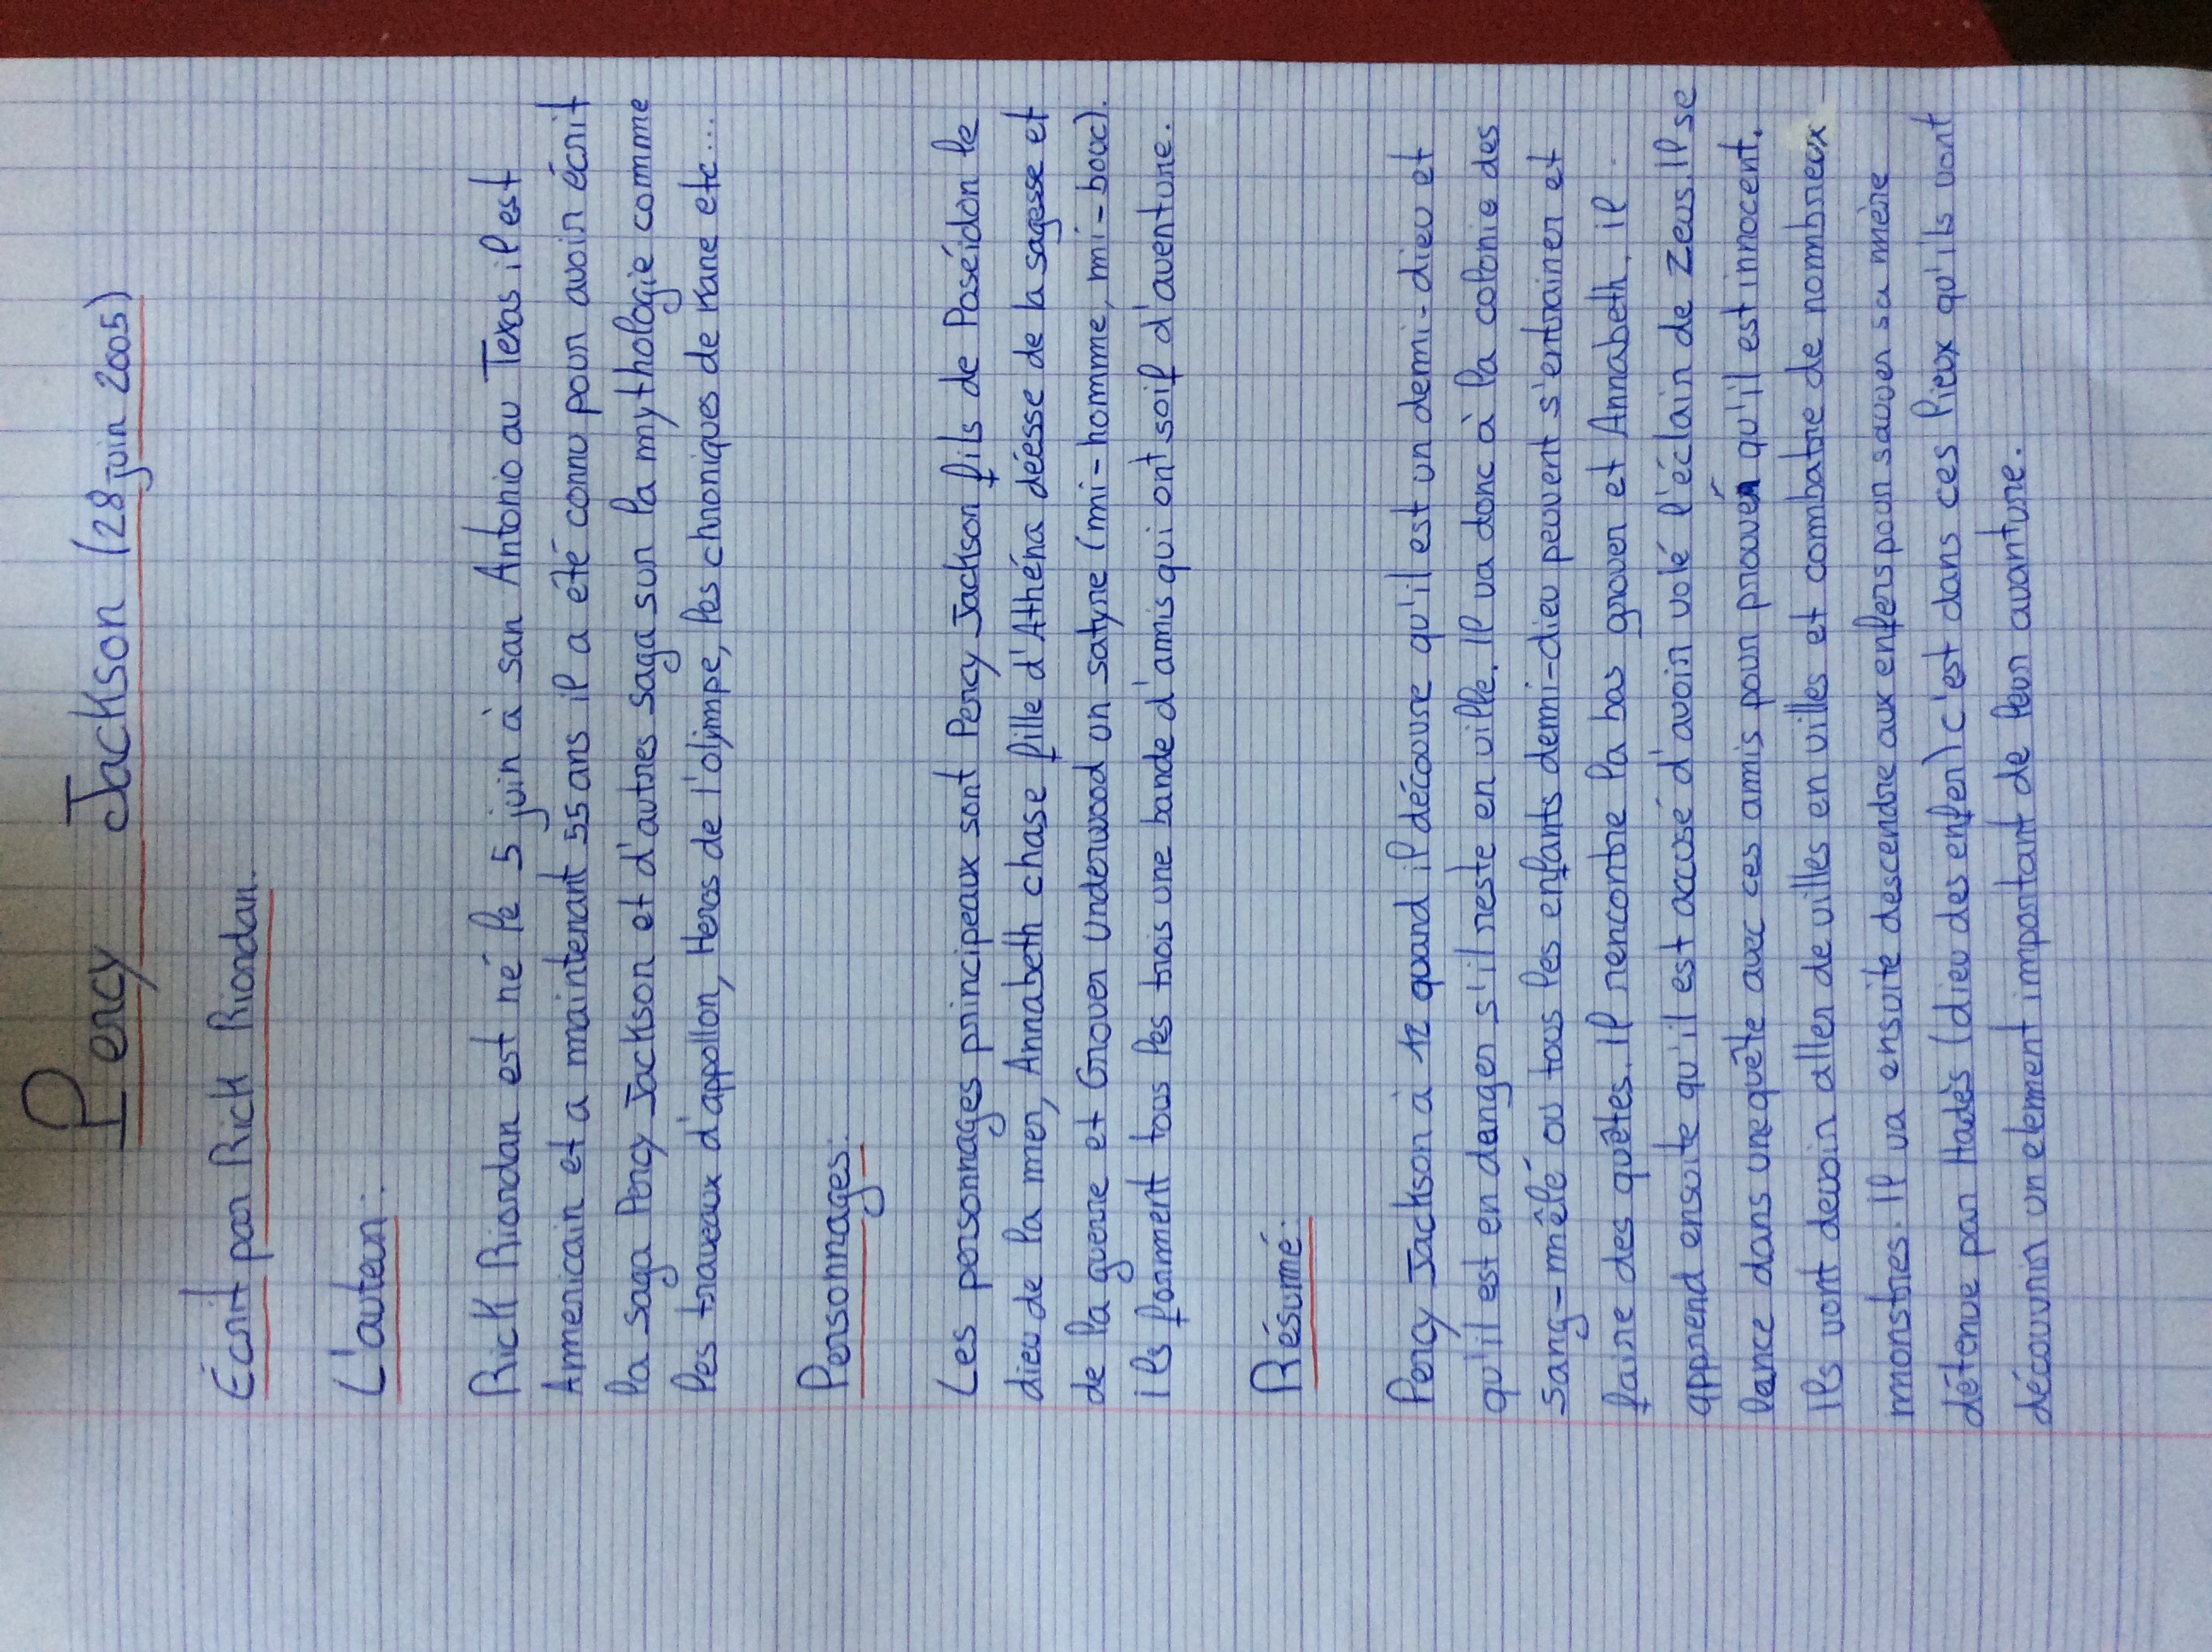 Percy Jackson (28 juin 2005)
Écrit par Rick Riordan.
L'auteur:
Rick Riordan est né le 5 juin à san Antonio au Texas il est
Americain et a maintenant 55 ans il a été connu pour avoir écrit
la saga Percy Jackson et d'autres saga sur la mythologie comme
les traveaux d'appollon, Heros de l'olympe, les chroniques de Kane etc...
Personnages:
Les personnages principeaux sont Percy Jackson fils de Poséidon le
dieu de la mer, Annabeth chase fille d'Athéna déesse de la sagesse et
de la guerre et Grover underwood un satyre (mi-homme, mi-bouc).
ils forment tous les trois une bande d'amis qui ont soif d'aventure.
Résumé:
Percy Jackson à 12 quand il découvre qu'il est un demi-dieu et
qu'il est en danger s'il reste en ville. Il va donc à la colonie des
sang-mêlé ou tous les enfants demi-dieu peuvent s'entrainer et
faire des quêtes. Il rencontre la bas grover et Annabeth, il
apprend ensuite qu'il est accusé d'avoir volé l'éclair de Zeus. Il se
lance dans une quête avec ces amis pour prouvér qu'il est innocent.
Ils vont devoir aller de villes en villes et combatre de nombreux
monstres. Il va ensuite descendre aux enfers pour sauver sa mère
détenue par Hadès (dieu des enfer) c'est dans ces lieux qu'ils vont
découvrir un element important de leur avanture.